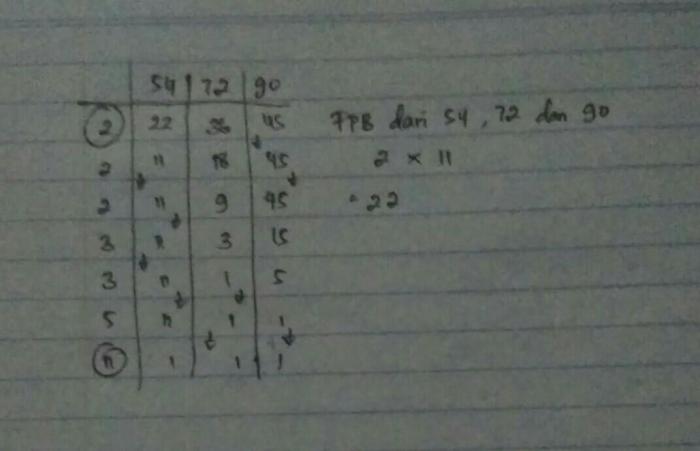 54 72 90
2 22 36 45 FPB dari 54, 72 dan 90
2 11 18 45 2 x 11
2 11 9 45 = 22
3 11 3 15
3 11 1 5
5 11 1 1
11 1 1 1